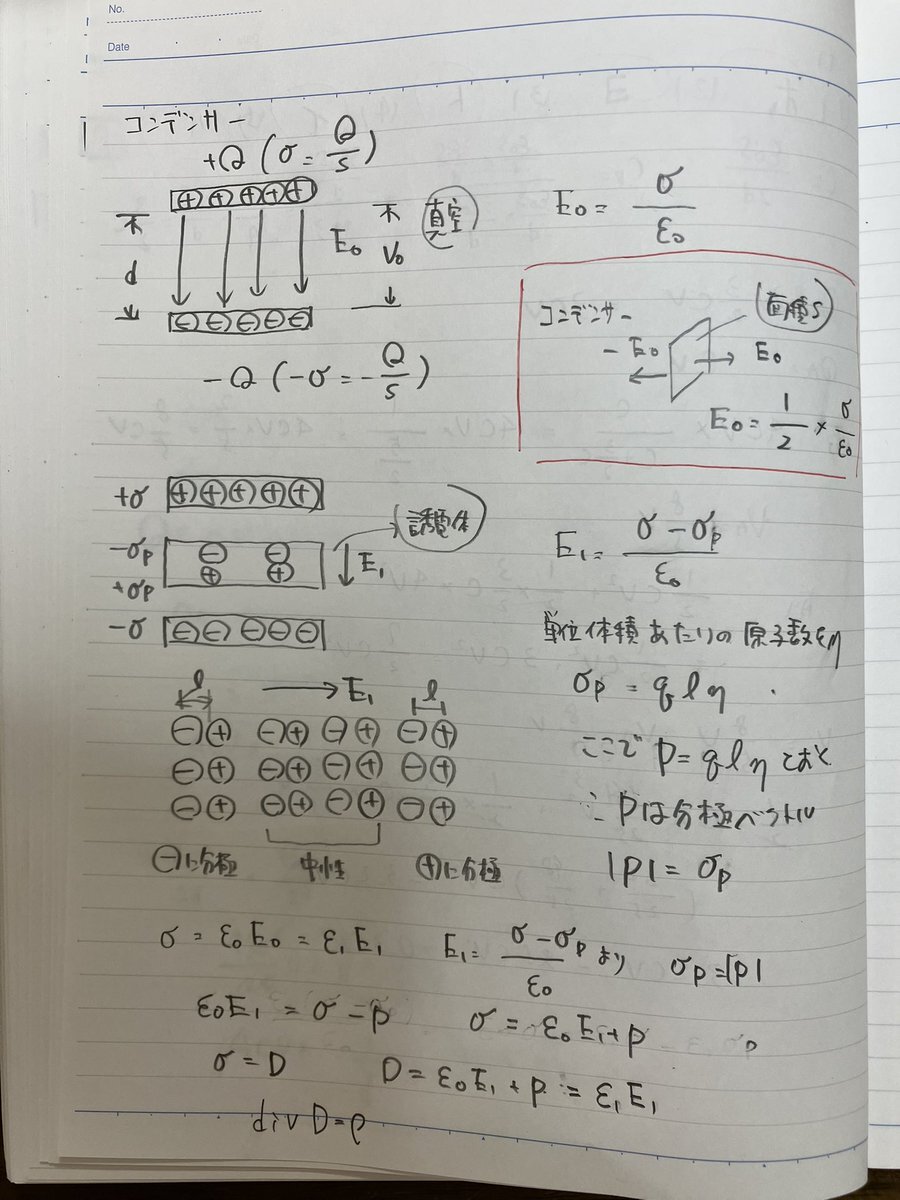 No.
Date
コンデンサー
+Q (σ = Q/S)
⊕⊕⊕⊕⊕
d
E₀
V₀
真空
⊖⊖⊖⊖⊖
-Q (-σ = -Q/S)
E₀ = σ/ε₀
コンデンサー
面積S
-E₀
E₀
E₀ = 1/2 × σ/ε₀
+σ ⊕⊕⊕⊕⊕
誘電体
-σp ⊖ ⊖
+σp ⊕ ⊕
E₁
-σ ⊖⊖⊖⊖⊖
E₁ = (σ - σp)/ε₀
単位体積あたりの原子数をη
l → E₁ l
⊖⊕ ⊖⊕ ⊖⊕ ⊖⊕
⊖⊕ ⊖⊕ ⊖⊕ ⊖⊕
⊖⊕ ⊖⊕ ⊖⊕ ⊖⊕
⊖に分極 中性 ⊕に分極
σp = qlη
ここで P = qlη とおく
∴ Pは分極ベクトル
|P| = σp
σ = ε₀E₀ = ε₁E₁ E₁ = (σ - σp)/ε₀ より σp = |P|
ε₀E₁ = σ - P σ = ε₀E₁ + P
σ = D D = ε₀E₁ + P = ε₁E₁
div D = ρ